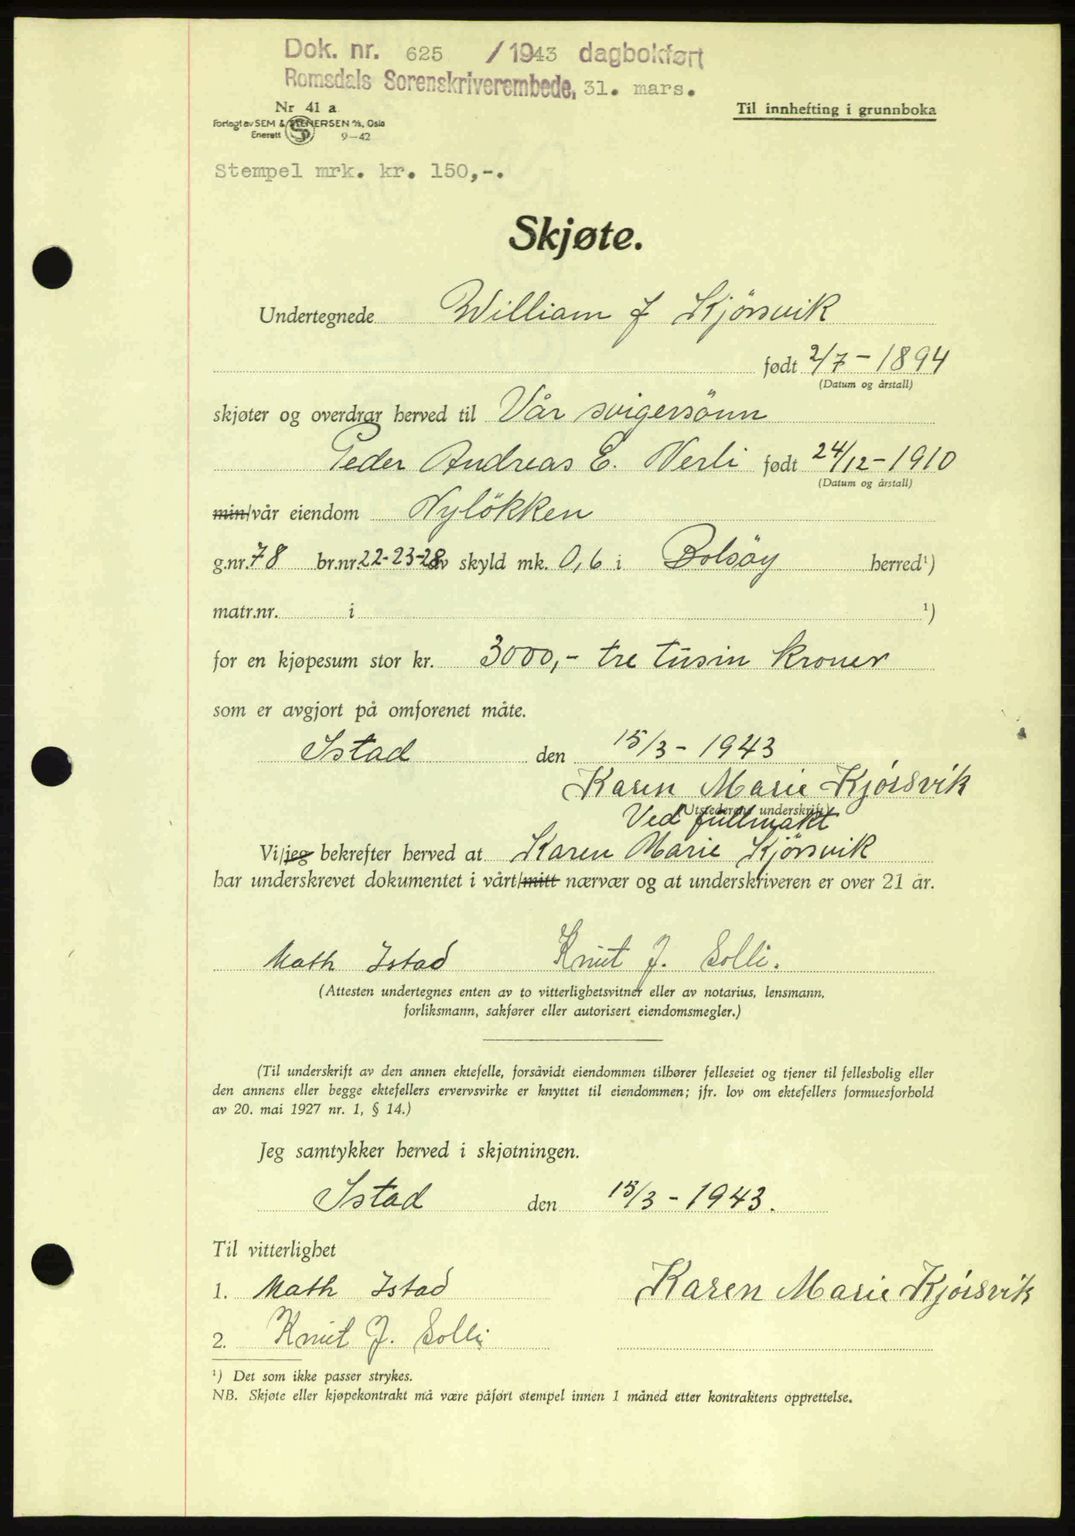 Dok. nr. 625 /1943 dagbokført
Romsdals Sorenskriverembede, 31. mars.
Nr 41 a
Forlagt av SEM & STENERSEN A/S, Oslo
Enerett 9-42
Til innhefting i grunnboka
Stempel mrk. kr. 150,-.
Skjøte.
Undertegnede William J Kjörsvik
født 2/7 - 1894
(Datum og årstall)
skjøter og overdrar herved til Vår svigersönn
Peder Andreas E. Nerli født 24/12 - 1910
(Datum og årstall)
min/vår eiendom Nylökken
g.nr. 78 br.nr. 22-23-28 av skyld mk. 0,6 i Bolsöy herred¹)
matr.nr. i ¹)
for en kjøpesum stor kr. 3000,- tre tusin kroner
som er avgjort på omforenet måte.
Istad den 15/3 - 1943
Karen Marie Kjörsvik
(Utstederens underskrift)
Ved fullmakt
Vi/jeg bekrefter herved at Karen Marie Kjörsvik
har underskrevet dokumentet i vårt/mitt nærvær og at underskriveren er over 21 år.
Math Istad Knut J. Solli.
(Attesten undertegnes enten av to vitterlighetsvitner eller av notarius, lensmann,
forliksmann, sakfører eller autorisert eiendomsmegler.)
(Til underskrift av den annen ektefelle, forsåvidt eiendommen tilhører felleseiet og tjener til fellesbolig eller
den annens eller begge ektefellers ervervsvirke er knyttet til eiendommen; jfr. lov om ektefellers formuesforhold
av 20. mai 1927 nr. 1, § 14.)
Jeg samtykker herved i skjøtningen.
Istad den 15/3 - 1943.
Til vitterlighet
1. Math Istad Karen Marie Kjörsvik
2. Knut J. Solli
¹) Det som ikke passer strykes.
NB. Skjøte eller kjøpekontrakt må være påført stempel innen 1 måned etter kontraktens opprettelse.